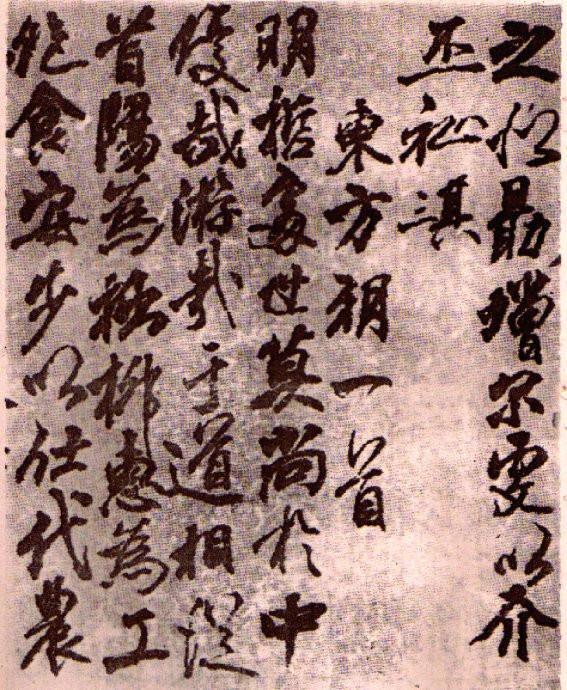 之勗增尔以介
丕祉
東方朔一首
明哲處世莫尚於中
優哉游哉于道相從
首陽為柳惠為工
飽食安步以仕代農